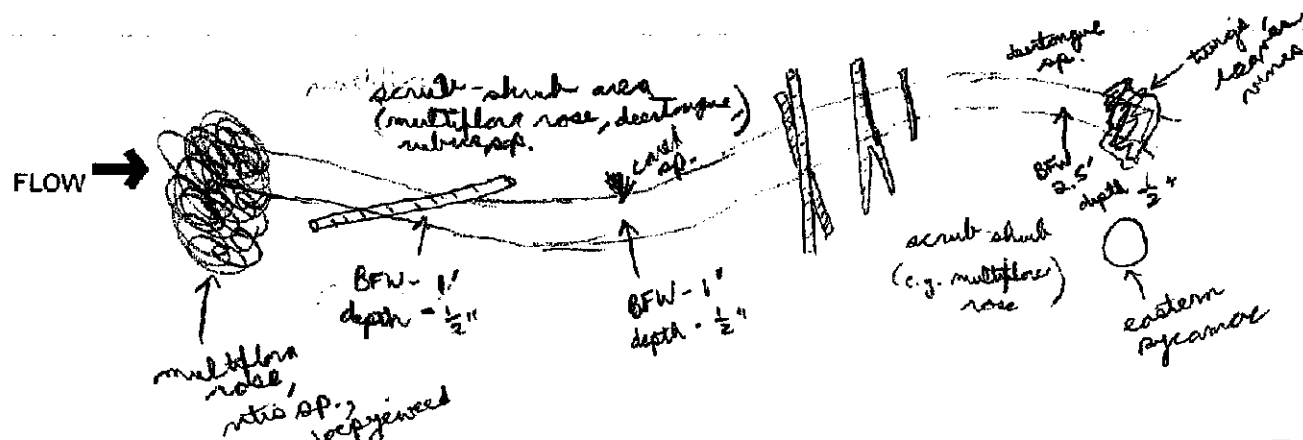 FLOW
scrub-shrub area
(multiflora rose, deertongue,)
rubus sp.
carex
sp.
deertongue
sp.
twigs,
leaves
vines
BFW - 1'
depth - 1/2"
BFW - 1'
depth - 1/2"
BFW
2.5'
depth 1/2"
scrub-shrub
(e.g. multiflora
rose)
eastern
sycamore
multiflora
rose,
vitis sp.,
joepyeweed